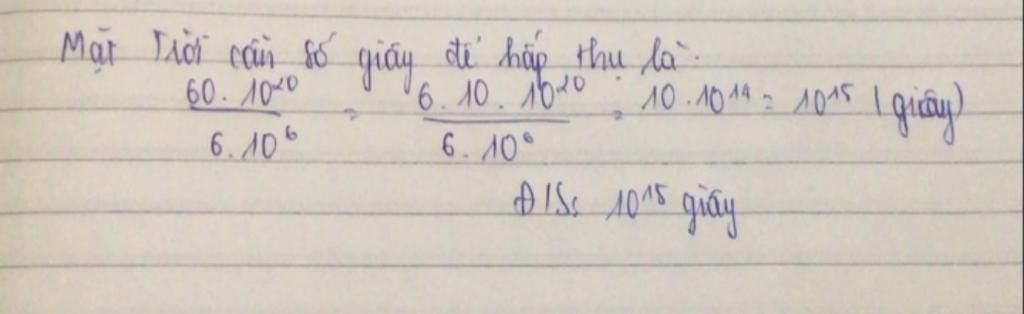 Mặt Trời cần số giây để hấp thụ là:
60 . 10²⁰ / 6 . 10⁶ = 6 . 10 . 10²⁰ / 6 . 10⁶ = 10 . 10¹⁴ = 10¹⁵ (giây)
Đ/S: 10¹⁵ giây